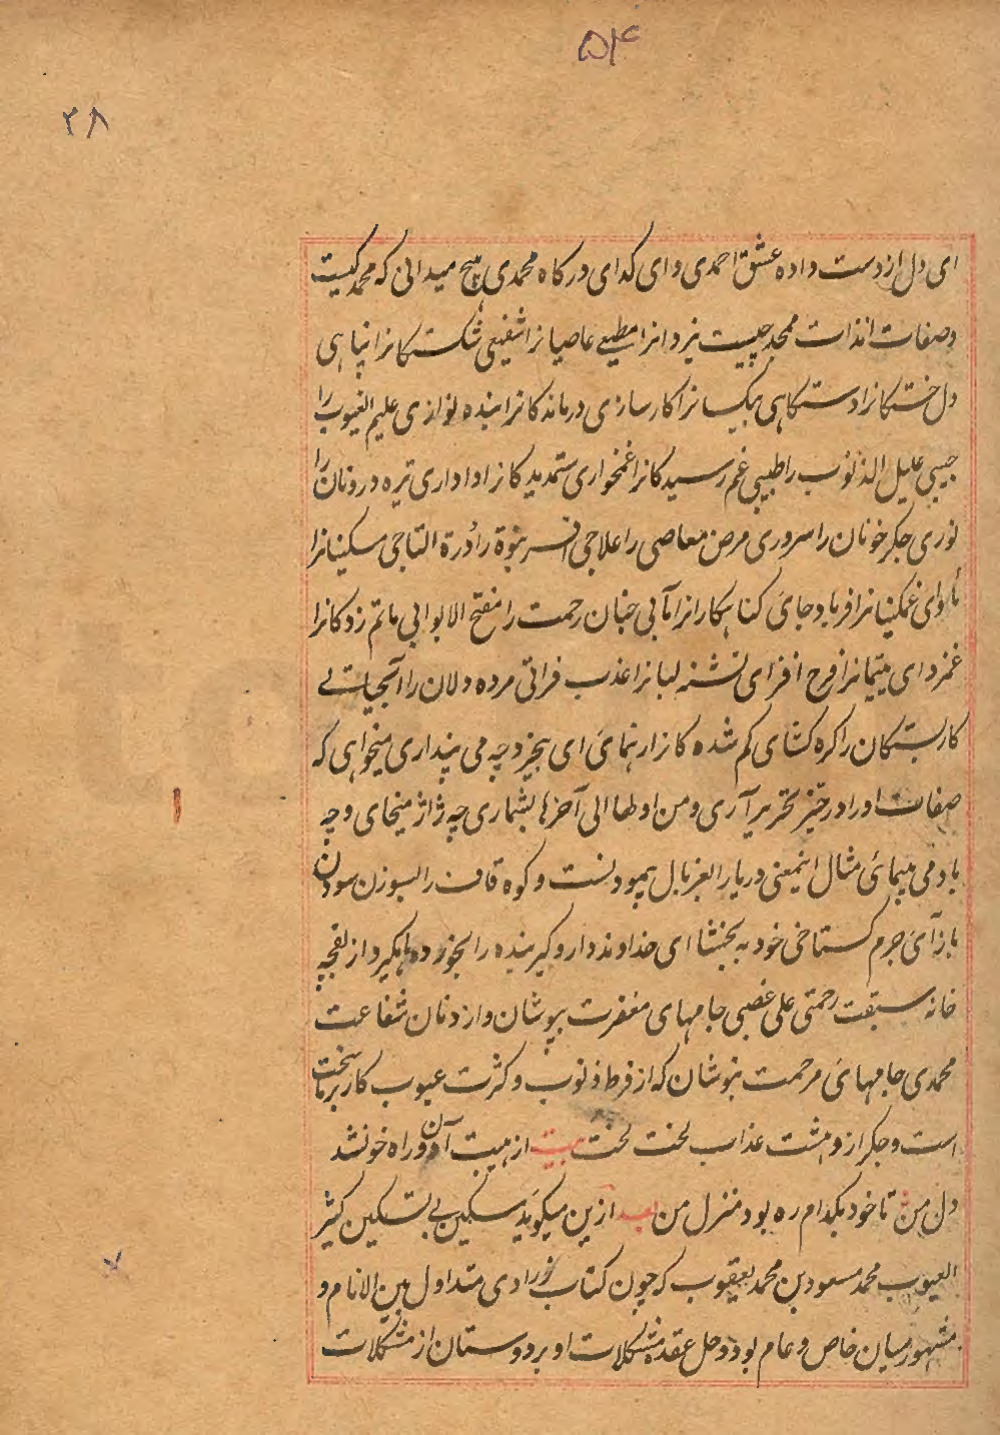 ۵۴
۲۸
ای دل از دست داده عشق احمدی و ای کدای درکاه محمدی هیچ میدانی که محمد کیست
و صفات انذات ممجد چیست یزدانرا مطیعی عاصیانرا شفیعی شکستکانرا پناهی
دل خستکانرا دستکاهی بیکسانرا کارسازی درماندکانرا بنده نوازی علیم الغیوب را
حبیبی علیل الذنوب را طبیبی غم رسیدکانرا غمخواری ستمدیدکانرا داداری تیره درونان را
نوری جکر خونان را سروری مرض معاصی را علاجی افسر نبوة را درة التاجی مسکینانرا
مأوای غمکینانرا فریاد جای کناهکارانرا مآبی جنان رحمت را مفتح الابوابی ماتم زدکانرا
غمزدای یتیمانرا فرح افزای تشنه لبانرا عذب فراتی مرده دلان را آبحیاتی
کاربستکان را کره کشای کم شده کانرا رهنمای ای بیخرد چه می پنداری میخواهی که
صفات او را در حیز تحریر آری و من اولها الی آخرها بشماری چه ژاژ میخای و چه
باد می پیمائی مثال اینمعنی دریا را بغربال پیمودنست و کوه قاف را بسوزن سودن
باز آی جرم کستاخی خود به بخشا ای خداوند دار و کیر بنده را بخورده ها مکیر و از بقچه
خانه سبقت رحمتی علی غضبی جامهای مغفرت بپوشان و از دنان شفاعت
محمدی جامهای مرحمت بنوشان که از فرط ذنوب و کثرت عیوب کار بر ما سخت
است و جکر از دهشت عذاب لخت لخت بیت از هیبت آن دو راه خونشد
دل من تا خود بکدام ره بود منزل من بعد ازین میکوید مسکین بی تسکین کثیر
العیوب محمد مسعود بن محمد یعقوب که چون کتاب زرادی متداول بین الانام و
مشهور میان خاص و عام بود و حل عقده مشکلات او بر دوستان از مشکلات